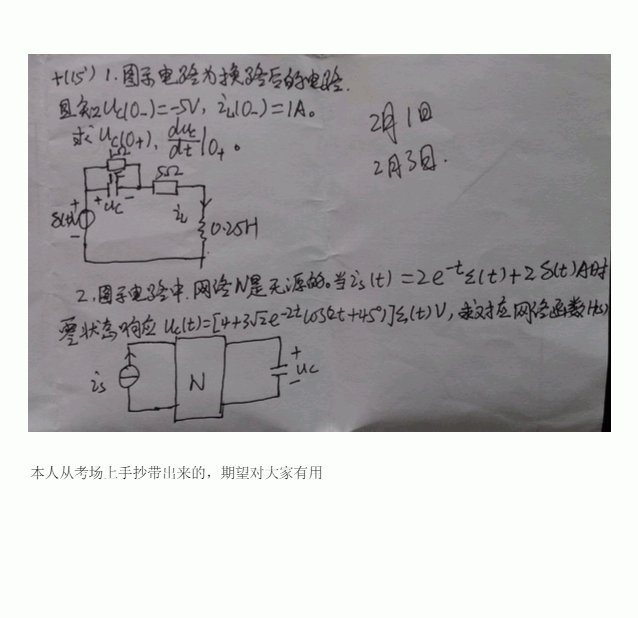 十(15') 1.图示电路为换路后的电路.
且知 uc(0-)=-5V, iL(0-)=1A。
求 uc(0+), duc/dt|0+。
2月1日
2月3日.
1Ω
1F
5Ω
+ uc -
δ(t)V
+
-
iL
0.25H
2.图示电路中,网络N是无源的。当is(t)=2e^-t ε(t)+2δ(t)A时
零状态响应 uc(t)=[4+3√2e^-2t cos(2t+45°)]ε(t)V,求对应网络函数H(s)
is
N
+
uc
-
本人从考场上手抄带出来的，期望对大家有用